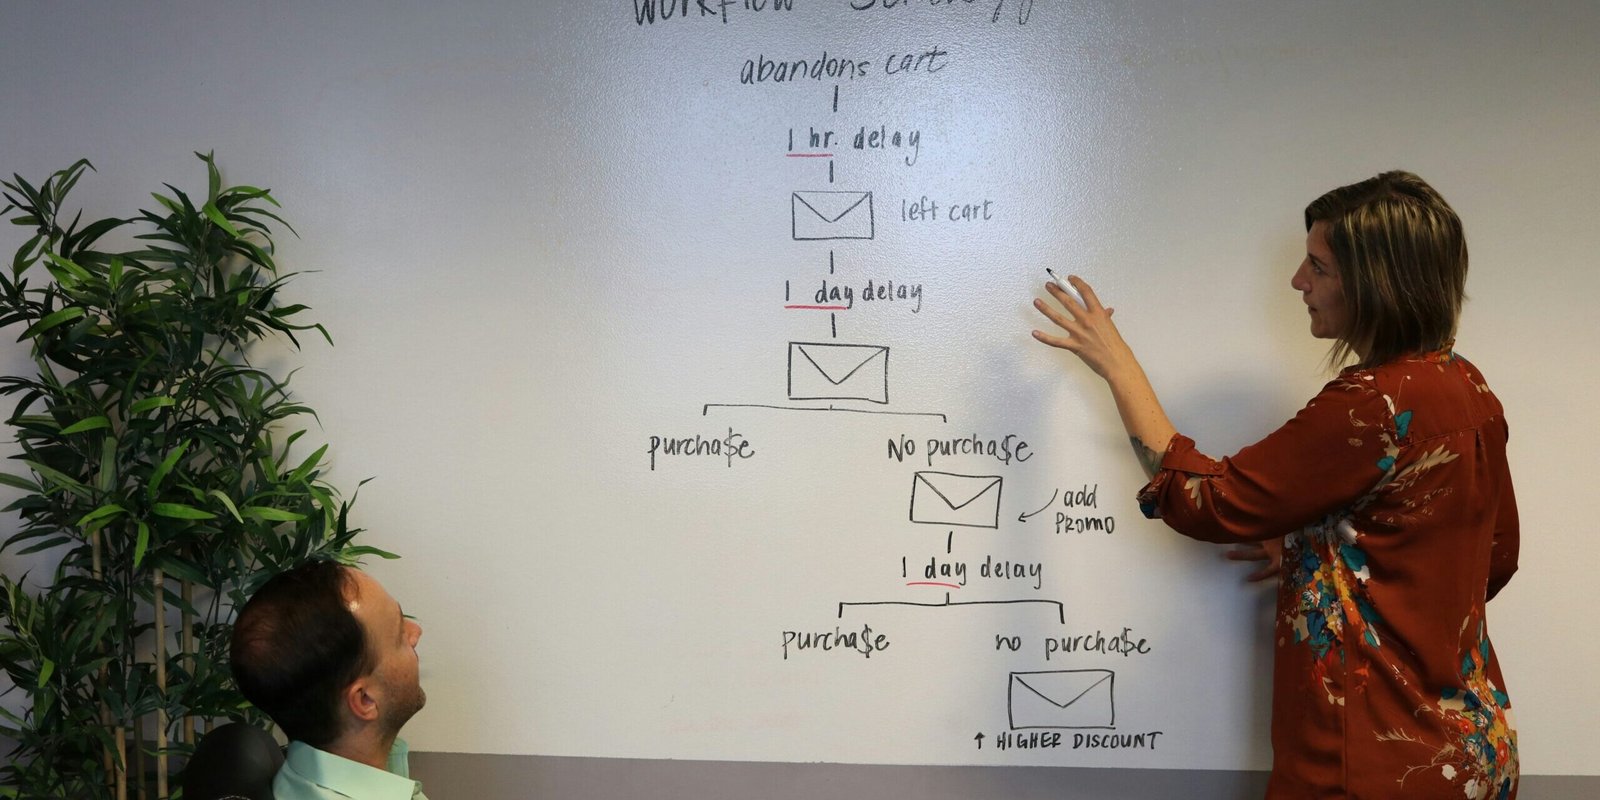 workflow
abandons cart
1 hr. delay
left cart
1 day delay
purcha$e
No purcha$e
add
PROMO
1 day delay
purcha$e
no purcha$e
↑ HIGHER DISCOUNT